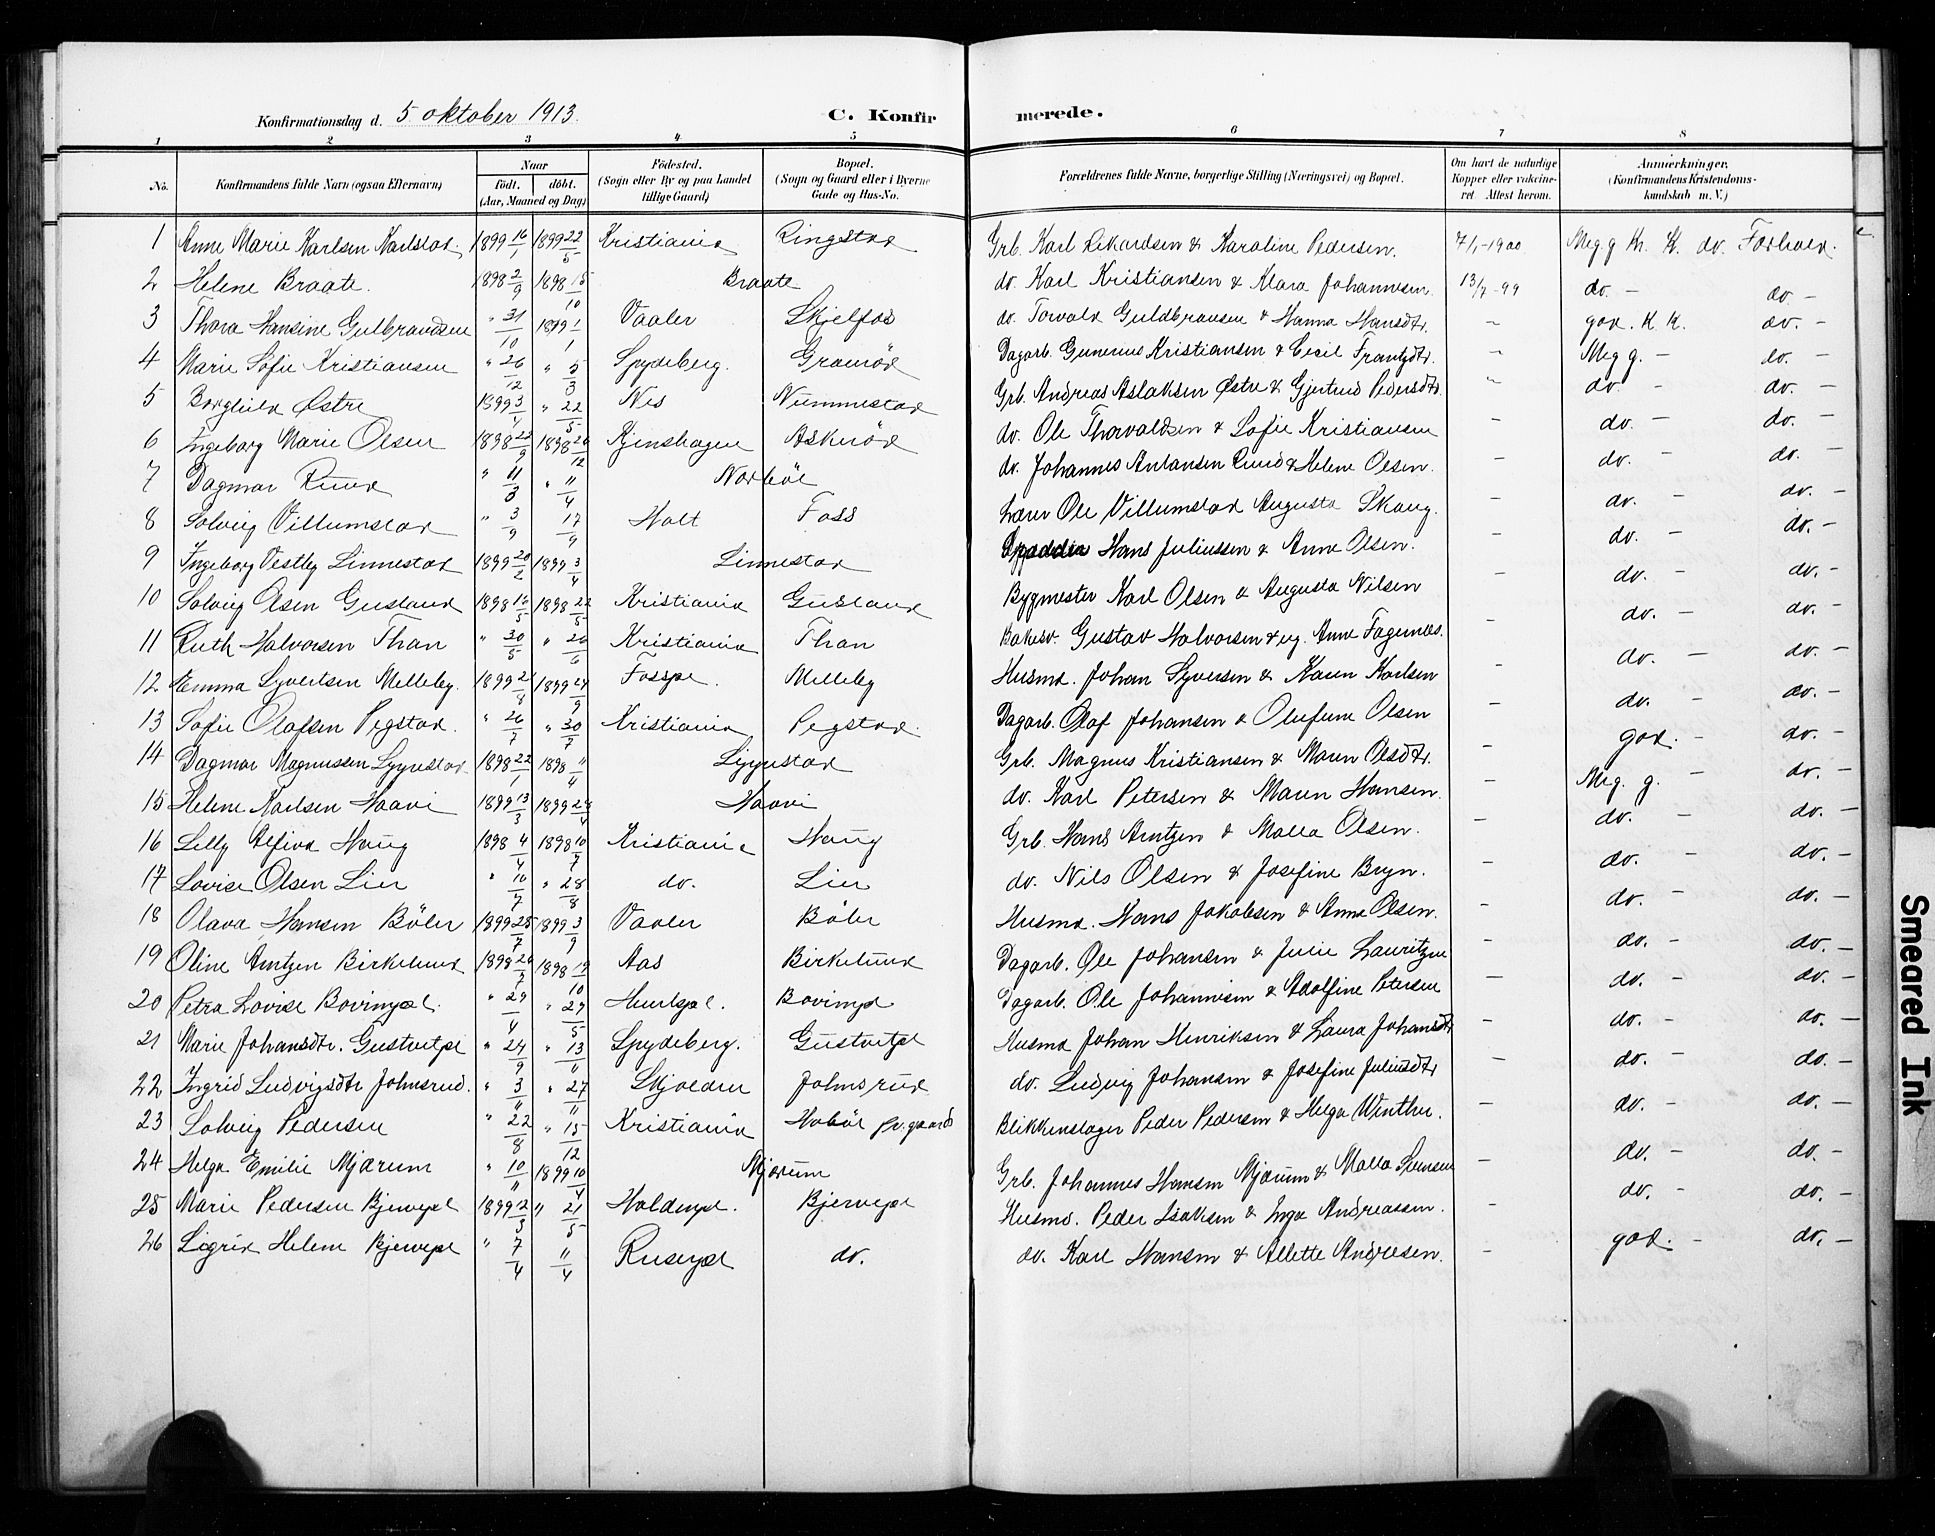 Konfirmationsdag d. 5 oktober 1913. C. Konfirmerede.
1 2 3 4 5 6 7 8
No. Konfirmandens fulde Navn (ogsaa Efternavn) Naar født. døbt. (Aar, Maaned og Dag) Fødested. (Sogn eller By og paa Landet tillige Gaard) Bopæl. (Sogn og Gaard eller i Byerne Gade og Hus-No. Forældrenes fulde Navne, borgerlige Stilling (Næringsvei) og Bopæl. Om havt de naturlige Kopper eller vakcineret. Attest herom. Anmærkninger. (Konfirmandens Kristendomskundskab m. V.)
1 Anne Marie Karlsen Karlstad. 1899 16/1 1899 22/5 Kristiania Ringstad Grb. Karl Rikardsen & Karoline Pedersen. 7/1-1900 Meg. g Kr. K. do. Forhold.
2 Helene Braate. 1898 2/9 1898 15/10 Braate do. Karl Kristiansen & Klara Johannesen. 13/7-99 do. - do. -
3 Thora Hansine Gulbrandsen " 31/10 1899 1/1 Vaaler Skjelfos do. Torvald Guldbransen & Hanna Hansdtr. - god. K K. do. -
4 Marie Sofie Kristiansen " 26/12 " 5/3 Spydeberg. Gramöd Dagarb. Gunerius Kristiansen & Cecil Frantzdtr. - Meg g. - do. -
5 Borghild Østre 1899 3/4 " 22/5 Nes Nummestad Grb. Andreas Aslaksen Østre & Gjertrud Pedersdtr. - do - do. -
6 Ingeborg Marie Olsen 1898 22/9 1898 26/12 Askeröd do. Ole Thorvaldsen & Sofie Kristiansen - do. - do. -
7 Dagmar Ruud " 11/3 " 11/4 Norböl do. Johannes Antonsen Ruud & Helene Olsen. - do. - do. -
8 Solveig Villumstad " 3/9 17/11 Holt Foss Lærer Ole Villumstad Augusta Skaug. - do. - do. -
9 Ingeborg Vestby Linnestad 1899 20/2 1899 3/4 Linnestad Hans Juliussen & Anne Olsen. - do. - do. -
10 Solvig Olsen Gusland 1898 16/5 1898 22/5 Kristiania Gusland Bygmester Karl Olsen & Augusta Nilsen - do. - do. -
11 Ruth Halvorsen Than " 30/5 " 26/6 Kristiania Than Gustav Halvorsen & ug. Anne Fagernæs. - do. - do. -
12 Emma Syvertsen Melleby. 1899 2/8 1899 24/9 Melleby Husmd. Johan Syversen & Karen Karlsen - do. - do. -
13 Sofie Olafsen Pegstad. " 26/7 " 30/7 Kristiania Pegstad. Dagarb. Olaf Johansen & Olufine Olsen - do. - do. -
14 Dagmar Magnussen 1898 22/1 1898 11/4 Grb. Magnus Kristiansen & Maren Olsdtr. - god. - do. -
15 Helene Karlsen Haavi 1899 13/3 1899 24/4 Haavi do. Karl Petersen & Maren Hansen. - Meg. g. - do. -
16 Lilly Alfiva Haug 1898 4/4 1898 10/7 Kristiania Haug Grb. Hans Arntzen & Malla Olsen. - do. - do. -
17 Lovise Olsen Lier " 10/7 " 28/8 do. Lier do. Nils Olsen & Josefine Bryn. - do. - do. -
18 Olava Hansen Böler 1899 25/7 1899 3/9 Vaaler Böler Husmd. Hans Jakobsen & Anna Olsen. - do. - do. -
19 Oline Arntzen Birkelund 1898 26/7 1898 19/10 Aas Birkelund Dagarb. Ole Johansen & Julie Lauritzen - do. - do. -
20 Petra Lovise " 29/4 " 29/5 Dagarb. Ole Johannesen & Adolfine Petersen - do. - do. -
21 Marie Johansdtr. " 24/9 " 13/11 Spydeberg. Husmd Johan Henriksen & Laura Johansdtr - do. - do. -
22 Ingrid Ludvigsdtr Johnsrud. " 3/11 " 27/11 Skjolden Johnsrud do. Ludvig Johansen & Josefine Juliusdtr - do. - do. -
23 Solveig Pedersen " 22/8 " 15/12 Kristiania Hoböl pr.gaard Blikkenslager Peder Pedersen & Helga Winther. - do. - do. -
24 Helga Emilie Mjærum " 10/11 1899 10/4 Mjærum Grb. Johannes Hansen Mjærum & Malla Svensen - do. - do. -
25 Marie Pedersen 1899 12/3 " 21/5 Husmd. Peder Isaksen & Inga Andreassen. - do. - do. -
26 Sigrid Helene " 7/4 11/4 do. do. Karl Hansen & Allette Andresen. - god. - do. -
Smeared Ink